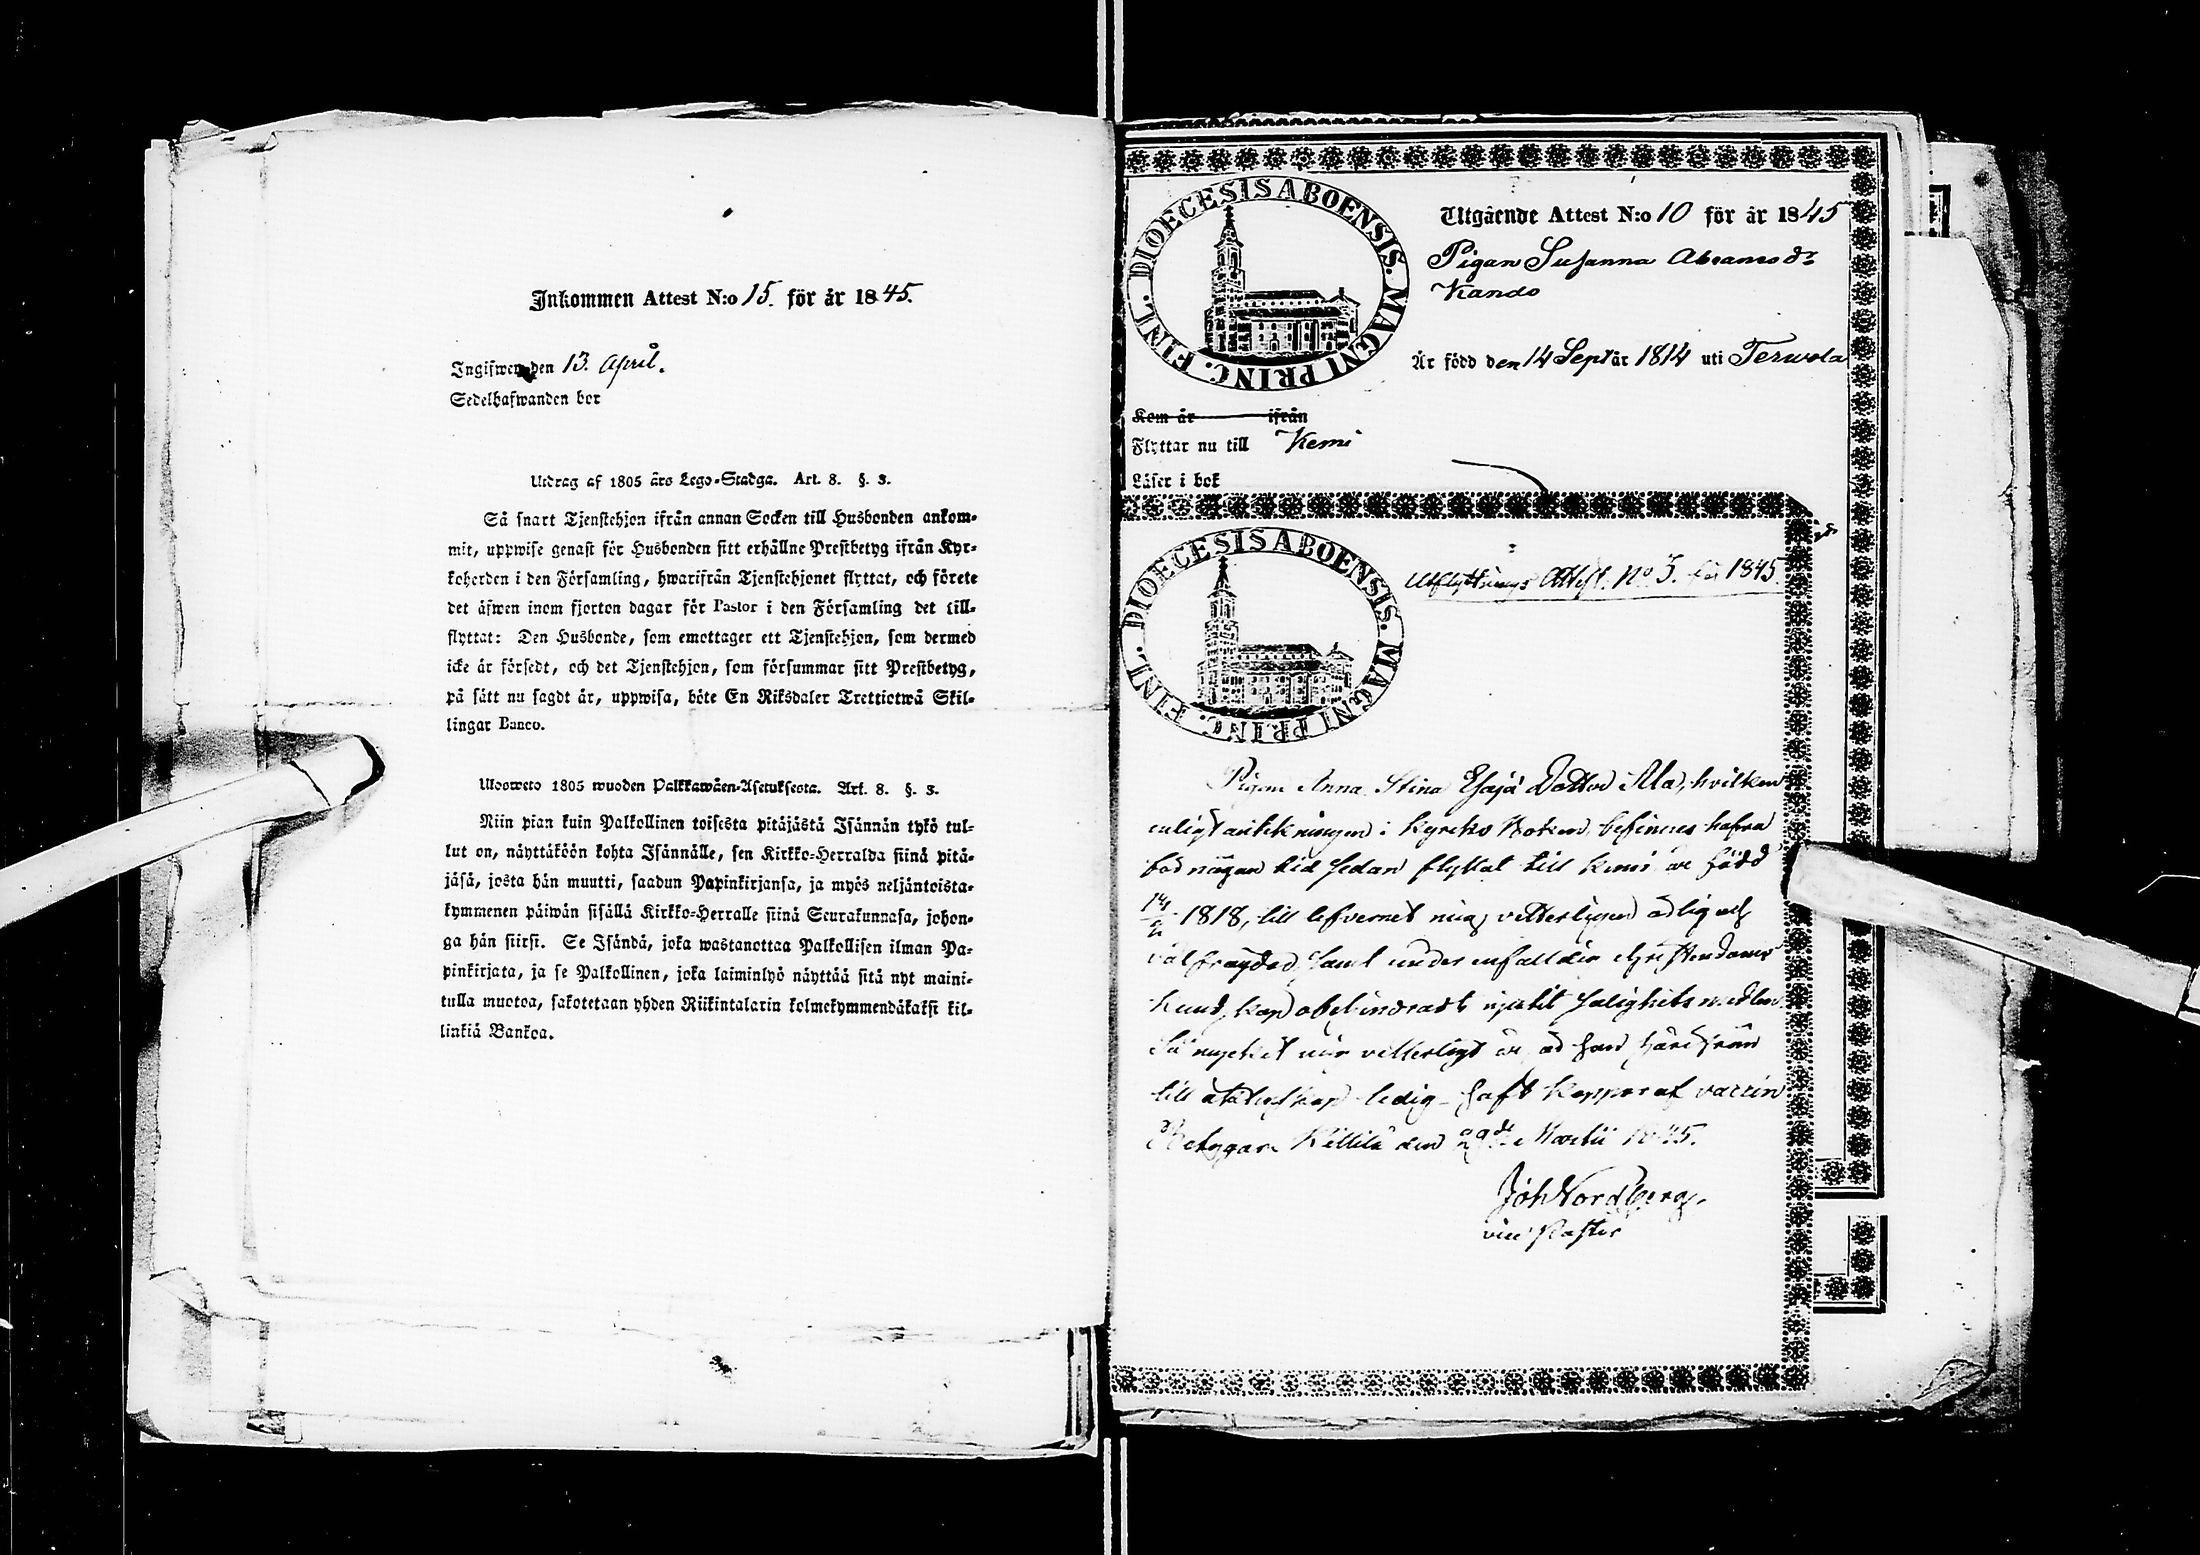 Inkommen Attest N:o 15. för år 1845.
Ingifwen den 13. April.
Sedelhafwanden bor
Utdrag af 1805 års Lego-Stadga. Art. 8. §. 3.
Så snart Tjenstehjon ifrån annan Socken till Husbonden ankom-
mit, uppwise genast för Husbonden sitt erhållne Prestbetyg ifrån Kyr-
koherden i den Församling, hwarifrån Tjenstehjonet flyttat, och förete
det äfwen inom fjorton dagar för Pastor i den Församling det till-
flyttat: Den Husbonde, som emottager ett Tjenstehjon, som dermed
icke är försedt, och det Tjenstehjon, som försummar sitt Prestbetyg,
på sätt nu sagdt är, uppwisa, böte En Riksdaler Trettiotwå Skil-
lingar Banco.
Uloosweto 1805 wuoden Palkkawäen-Asetuksesta. Art. 8. §. 3.
Niin pian kuin Palkollinen toisesta pitäjästä Isännän tykö tul-
lut on, näyttäköön kohta Isännälle, sen Kirkko-Herralda siinä pitä-
jäsä, josta hän muutti, saadun Papinkirjansa, ja myös neljäntoista-
kymmenen päiwän sisällä Kirkko-Herralle siinä Seurakunnasa, johon-
ga hän siirsi. Se Isändä, joka wastanottaa Palkollisen ilman Pa-
pinkirjata, ja se Palkollinen, joka laiminlyö näyttää sitä nyt maini-
tulla muotoa, sakotetaan yhden Riikintalarin kolmekymmendäkaksi kil-
linkiä Bankoa.
DIOECESIS ABOENSIS. MAGNI PRINC. FINL.
Utgående Attest N:o 10 för år 1845
Pigan Susanna Abramsdr
Kando
Är född den 14 Sept år 1814 uti Terwola
Kom år ifrån
Flyttar nu till Kemi
Läser i bok
DIOECESIS ABOENSIS. MAGNI PRINC. FINL.
Utflyttnings Attest. No 5. för 1845
Pigan Anna Stina Esajä Dotter Ala, hvilken
enligt antekningen i Kyrko Boken befinnes hafva
för någon tid sedan flyttat till Kemi är född
1818, till lefvernet mig vitterligen ärlig och
väl frägdad, samt under enfalldig christendoms
kunskap obehindradt njutit salighets medlen
Så mycket mig vitterligt är, är hon härifrån
till äktenskap ledig - haft koppor af vaccin
Betygar Kittilä den 29de Martii 1845.
Joh Nordberg,
vice Pastor